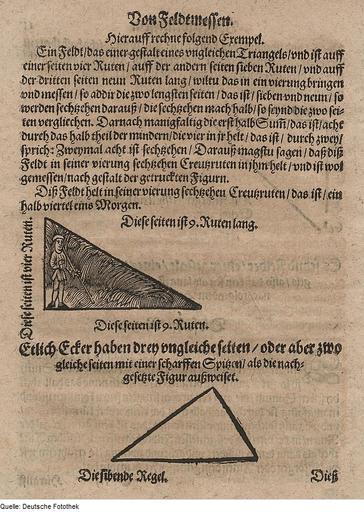 Von Feldtmessen.
Hierauff rechne folgend Exempel.
Ein Feldt/das einer gestalt eines vngleichen Triangels/vnd ist auff
einer seiten vier Ruten/auff der andern seiten sieben Ruten/vnd auff
der dritten seiten neun Ruten lang/wiltu das in ein vierung bringen
vnd messen/so addir die zwo lengsten seiten/das ist/sieben vnd neun/so
werden sechtzehen darauß/die sechtzehen mach halb/so seynd die zwo sei-
ten verglichen. Darnach manigfaltig die erst halb Suma/das ist/acht
durch das halb theil der mindern/die vier in jr helt/das ist/durch zwey/
sprich: Zweymal acht ist sechtzehen/Darauß magstu sagen/daß diß
Feldt in seiner vierung sechtzehen Creutzruten in jhm helt/vnd ist wol
gemessen/nach gestalt der getruckten Figurn.
Diß Feldt helt in seiner vierung sechtzehen Creutzruten/das ist/ein
halb viertel eins Morgen.
Diese seiten ist vier Ruten.
Diese seiten ist 9. Ruten lang.
Diese seiten ist 9. Ruten.
Etlich Ecker haben drey vngleiche seiten/oder aber zwo
gleiche seiten mit einer scharffen Spitzen/als die nach-
gesetzte Figur außweiset.
Die sibende Regel.
Dieß
Quelle: Deutsche Fotothek